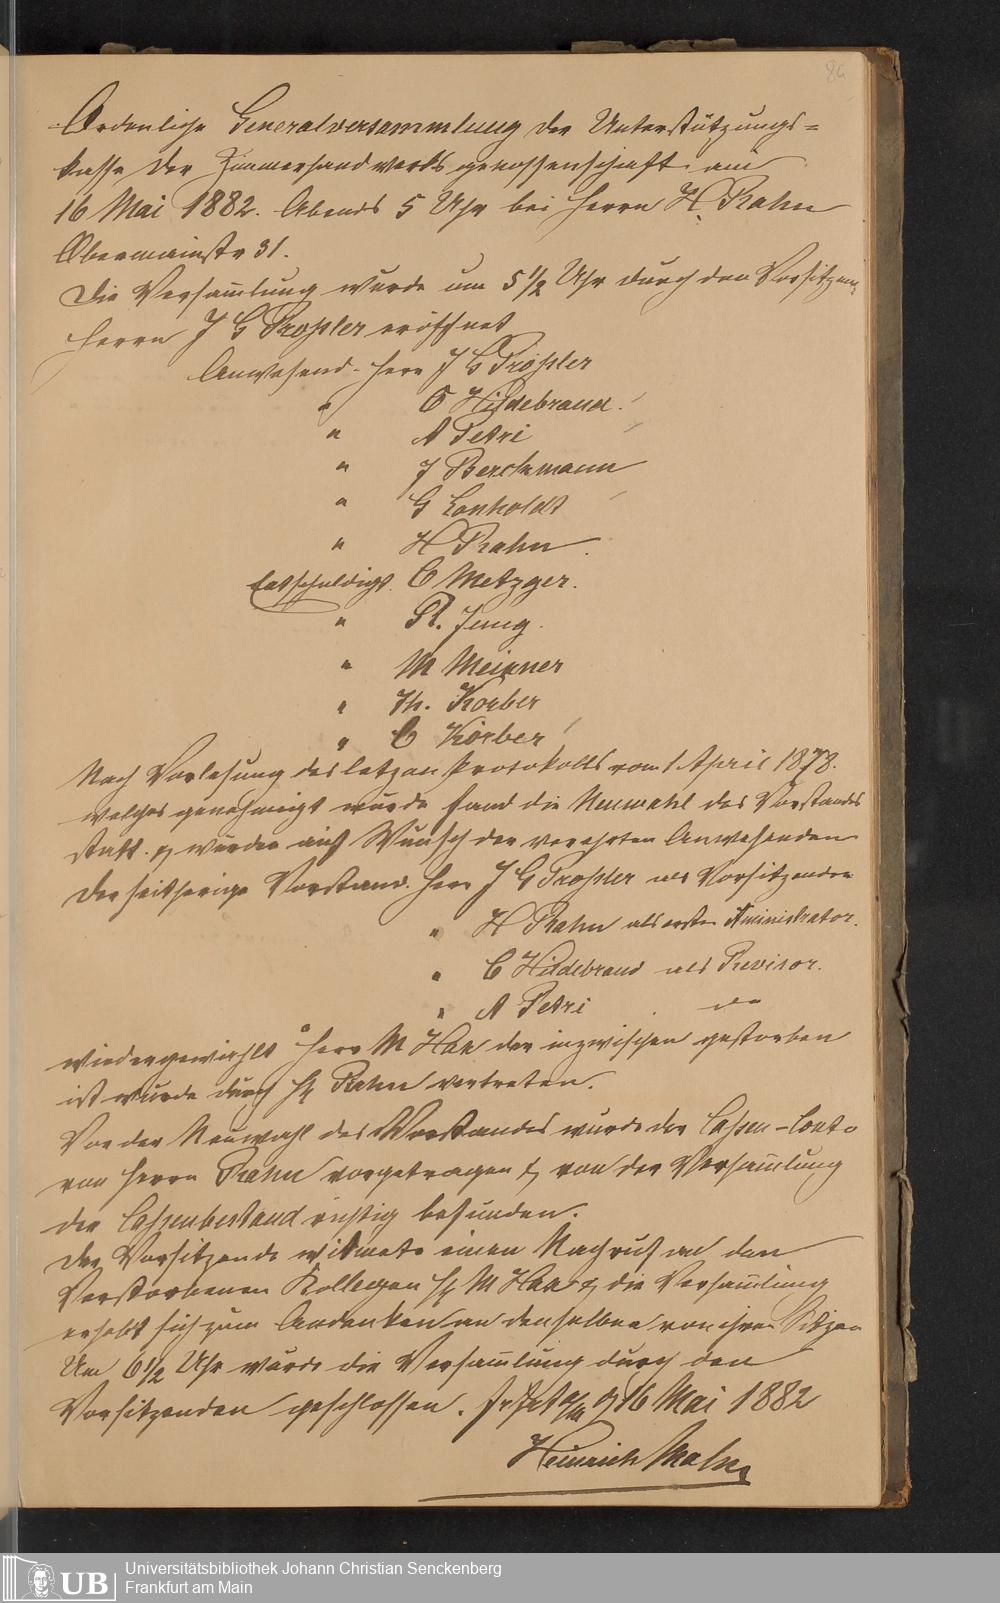 86
Ordenliche Generalversammlung der Unterstützungs=
kasse der Zimmerhandwerks genossenschaft am
16 Mai 1882. Abends 5 Uhr bei Herrn H. Rahn
Obermainstr 31.
Die Versam̄lung wurde um 5 1/2 Uhr durch den Vorsitzen.
Herrn J G Proßler eröffnet
Anwesend. Herr J G Proßler
" C Hildebrand.
" A Petri
" J Berckmann
" G Lonholdt
" H Rahn.
Entschuldigt. C Metzger.
" Pl. Jung.
" M Meixner
" Th. Korber
" C Körber
Nach Vorlesung des letzen Protokolls vom 1 April 1878.
welches genehmigt wurde fand die Neuwahl des Vorstandes
statt. & wurden auf Wunsch der verehrten Anwesenden
der seitherige Vorstand. Herr J G Proßler als Vorsitzender
" H Rahn als erster Aministrator.
" C Hildebrand als Revisor.
" A Petri do
wiedergewählt Herr M Hax der inzwischen gestorben
ist wurde durch H Rahn vertreten.
Vor der Neuwahl des Vorstandes wurde der Cassen-Conto
von Herrn Rahn vorgetragen & von der Versam̄lung
der Cassenbestand richtig befunden.
Der Vorsitzende witmete einen Nachruf an den
Verstorbenen Kollegen H M Hax & die Versam̄lung
erhebt sich zum Andenken an denselben von ihren Sitzen
Um 6 1/2 Uhr wurde die Versam̄lung durch den
Vorsitzenden geschlossen. Frkft a/M d 16 Mai 1882
Heinrich Rahn
UB
Universitätsbibliothek Johann Christian Senckenberg
Frankfurt am Main